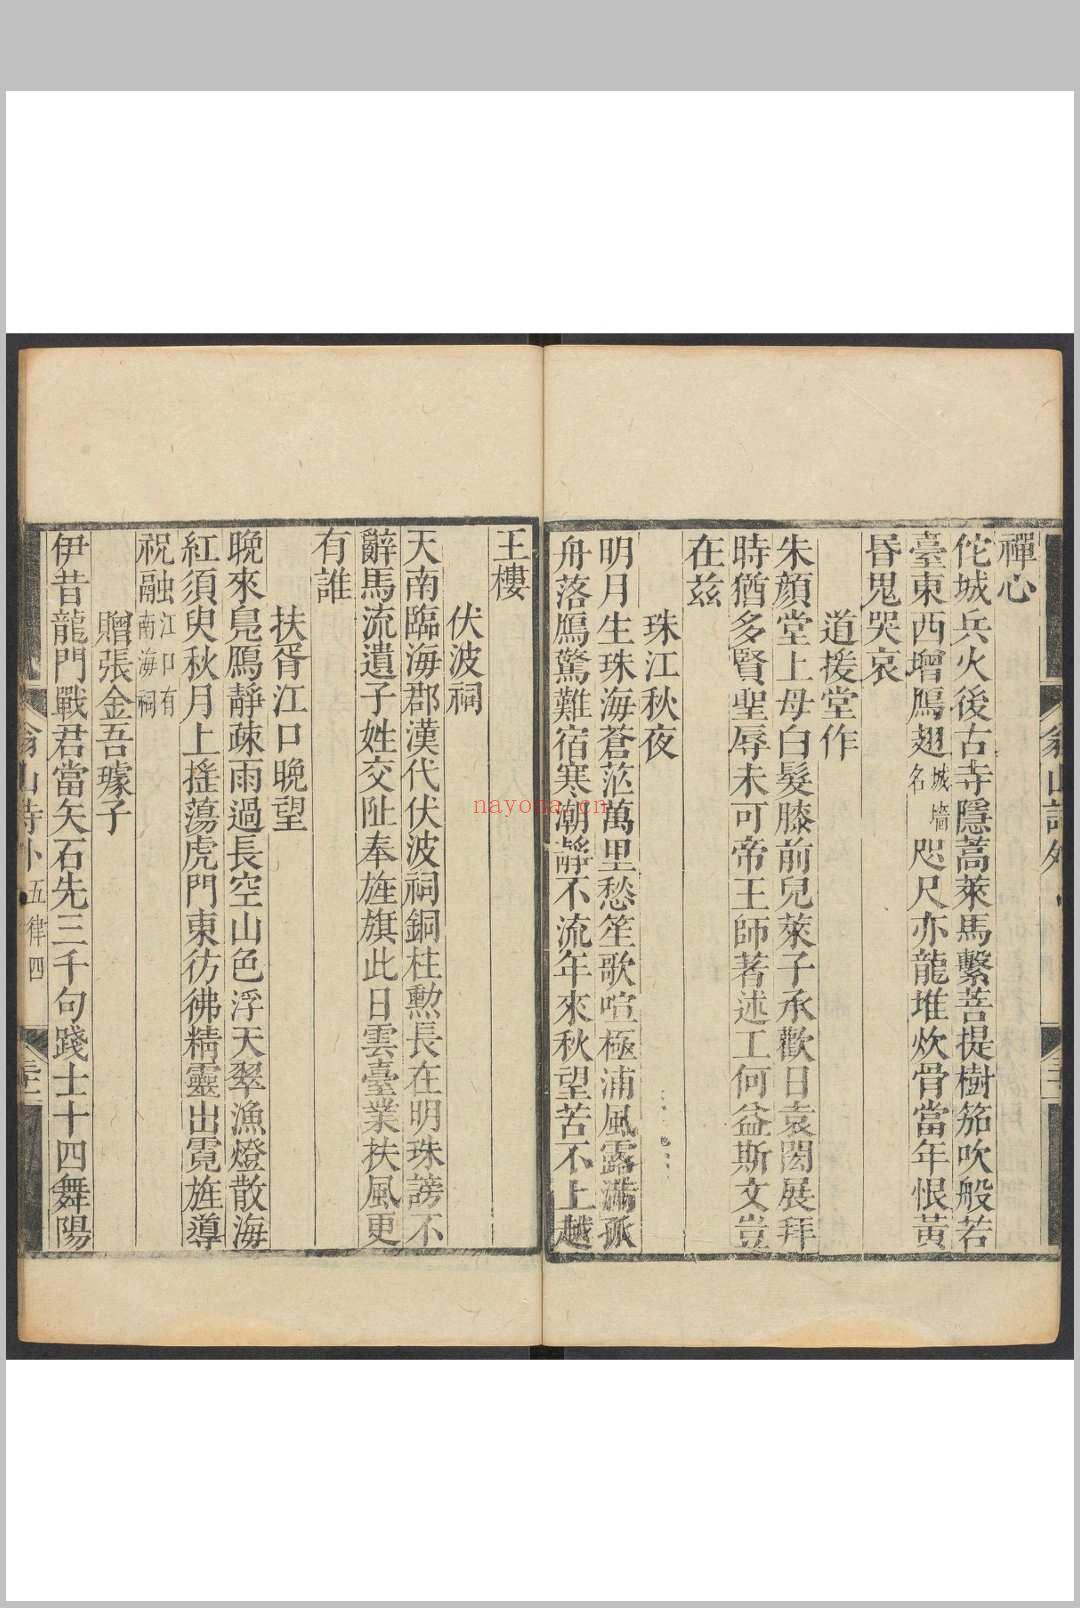 禪心
侘城兵火後古寺隱蒿萊馬繫菩提樹笳吹般若
臺東西增鴈翅城墻名咫尺亦龍堆炊骨當年恨黃
昬鬼哭哀
道援堂作
朱顏堂上母白髮膝前兒萊子承歡日袁閎展拜
時猶多賢聖辱未可帝王師著述工何益斯文豈
在兹
珠江秋夜
明月生珠海蒼茫萬里愁笙歌喧極浦風露滿孤
舟落鴈驚難宿寒潮靜不流年來秋望苦不上越
王樓
伏波祠
天南臨海郡漢代伏波祠銅柱勲長在明珠謗不
辭馬流遺子姓交阯奉旌旗此日雲臺業扶風更
有誰
扶胥江口晚望
晚來鳧鴈靜疎雨過長空山色浮天翠漁燈散海
紅須臾秋月上搖蕩虎門東彷彿精靈出霓旌導
祝融江口有南海祠
贈張金吾璩子
伊昔龍門戰君當矢石先三千句踐士十四舞陽
翁山詩外
五律四
nayona.cn